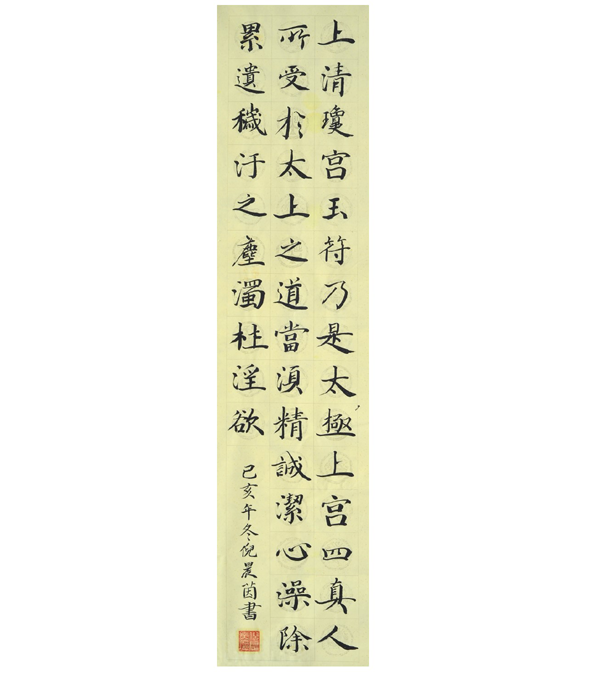 上清瓊宫玉符乃是太極上宫四真人
所受於太上之道當湏精誠潔心澡除
累遺穢汙之塵濁杜淫欲
己亥年冬倪晨茵書